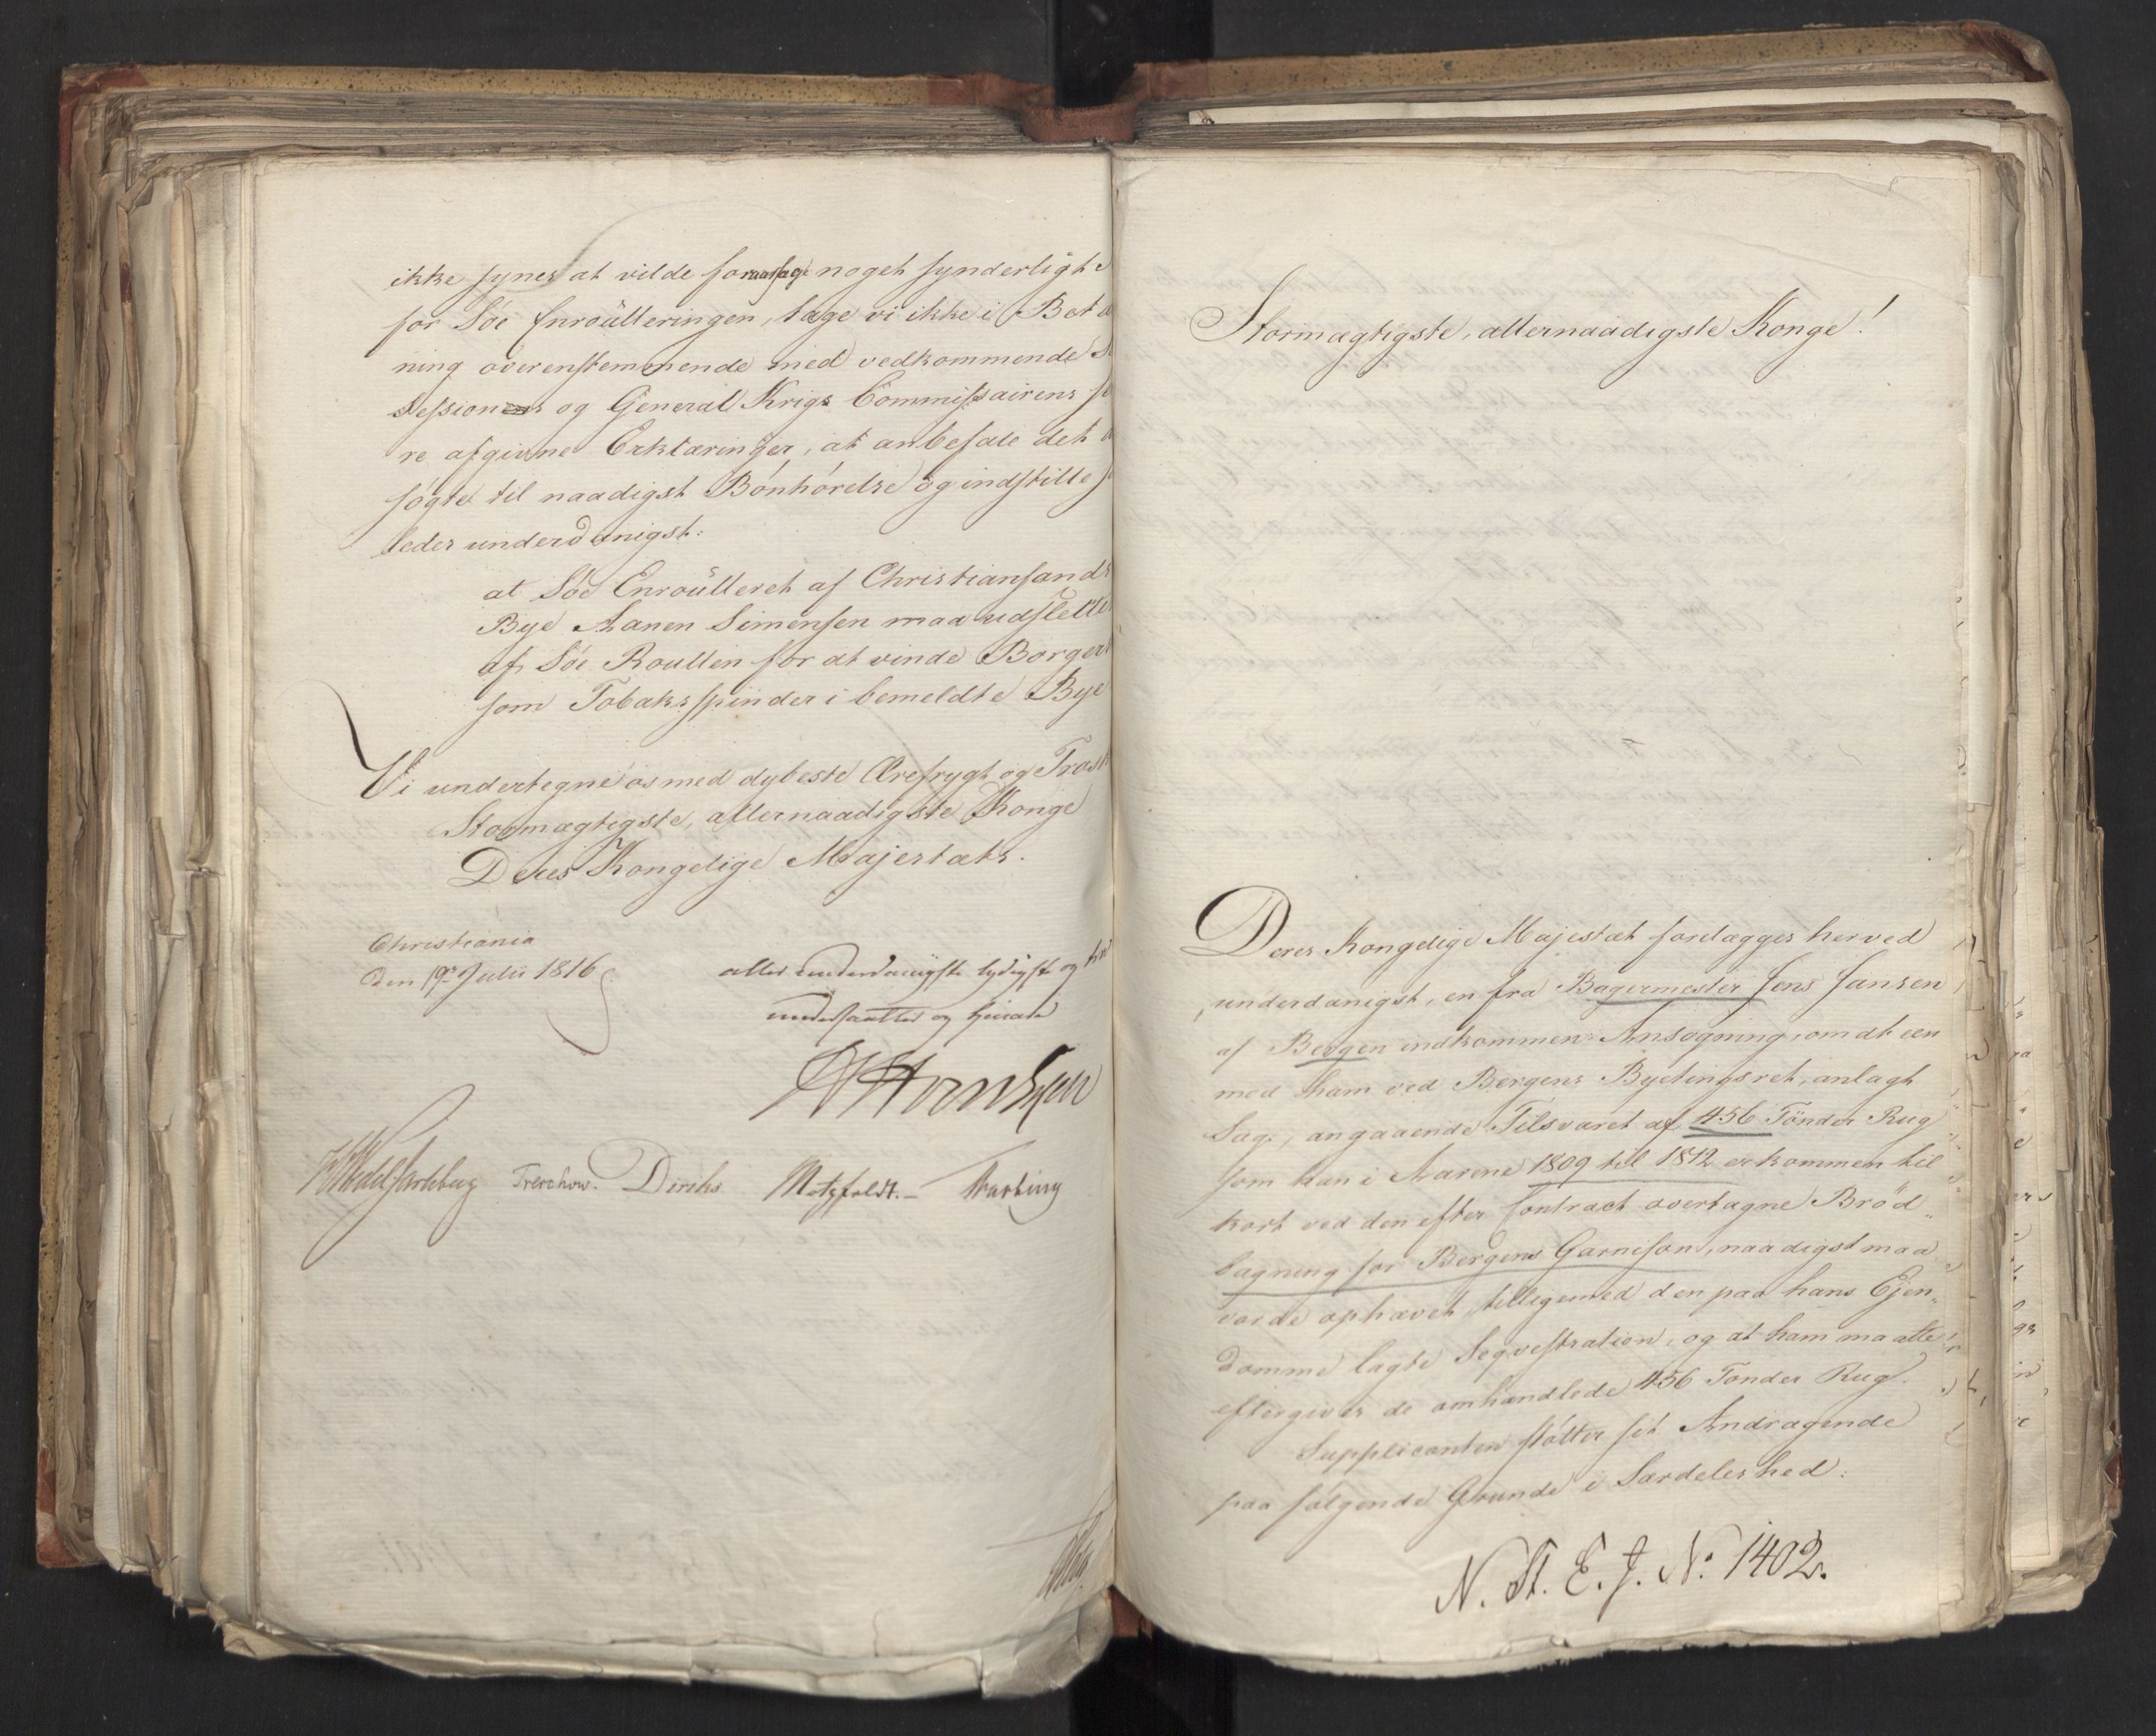 ikke synes at vilde foraarsage noget synderligt
for Söe Enroülleringen, tage vi ikke i Beta
ning overenstemmende med vedkommende
Sessions og General Krigs Commissairens
re afgivne Erklæringer, at anbefale det
søgte til naadigst Bönhörelse og indstille
ledes underdanigst:
at Söe Enroülleret af Christiansands
Bye Aanen Simensen maa udslettes
af Söe Roullen for at vinde Borger
som Tobaksspinder i bemeldte Bye
Vi undertegne os med dybeste Ærefrygt og Trosk
Stormægtigste, allernaadigste Konge
Deres Kongelige Majestæts.
Christiania
den 19de Julii 1816
aller underdanigste lydigste og
undersaatter og
Treschow. Diriks Motzfeldt.
Stormægtigste, allernaadigste Konge!
Deres Kongelige Majestæt forelægges herved
underdanigst, en fra Bagermester Jens Jansen
af Bergen indkommen Ansøgning, om at een
mod ham ved Bergens Byetingsret, anlagt
Sag, angaaende Tilsvaret af 456 Tönder Rug
som han i Aarene 1809 til 1812 er kommen til
kort ved den efter Contract overtagne Bröd„
bagning for Bergens Garnison, naadigst maa
vorde ophævet, tilligemed den paa hans Ejen„
domme lagte Seqvestration, og at ham maatte
eftergives de omhandlede 456 Tønder Rug.
Supplicanten støtter sit Andragende
paa følgende Grunde i Særdeleshed:
N. St. E. J. No: 1402.